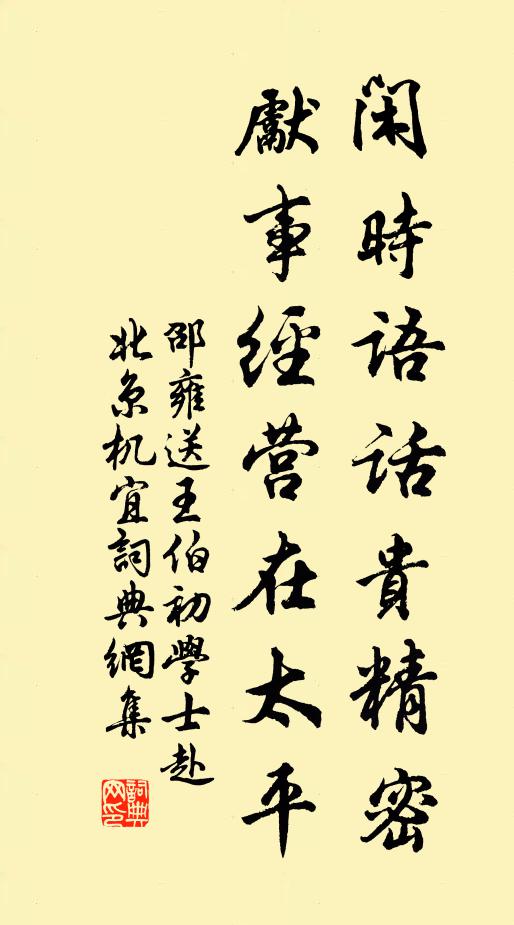 閑時語話貴精密
獻事經營在太平
邵雍送王伯初學士赴
北京机宜詞典網集
詞典
网印